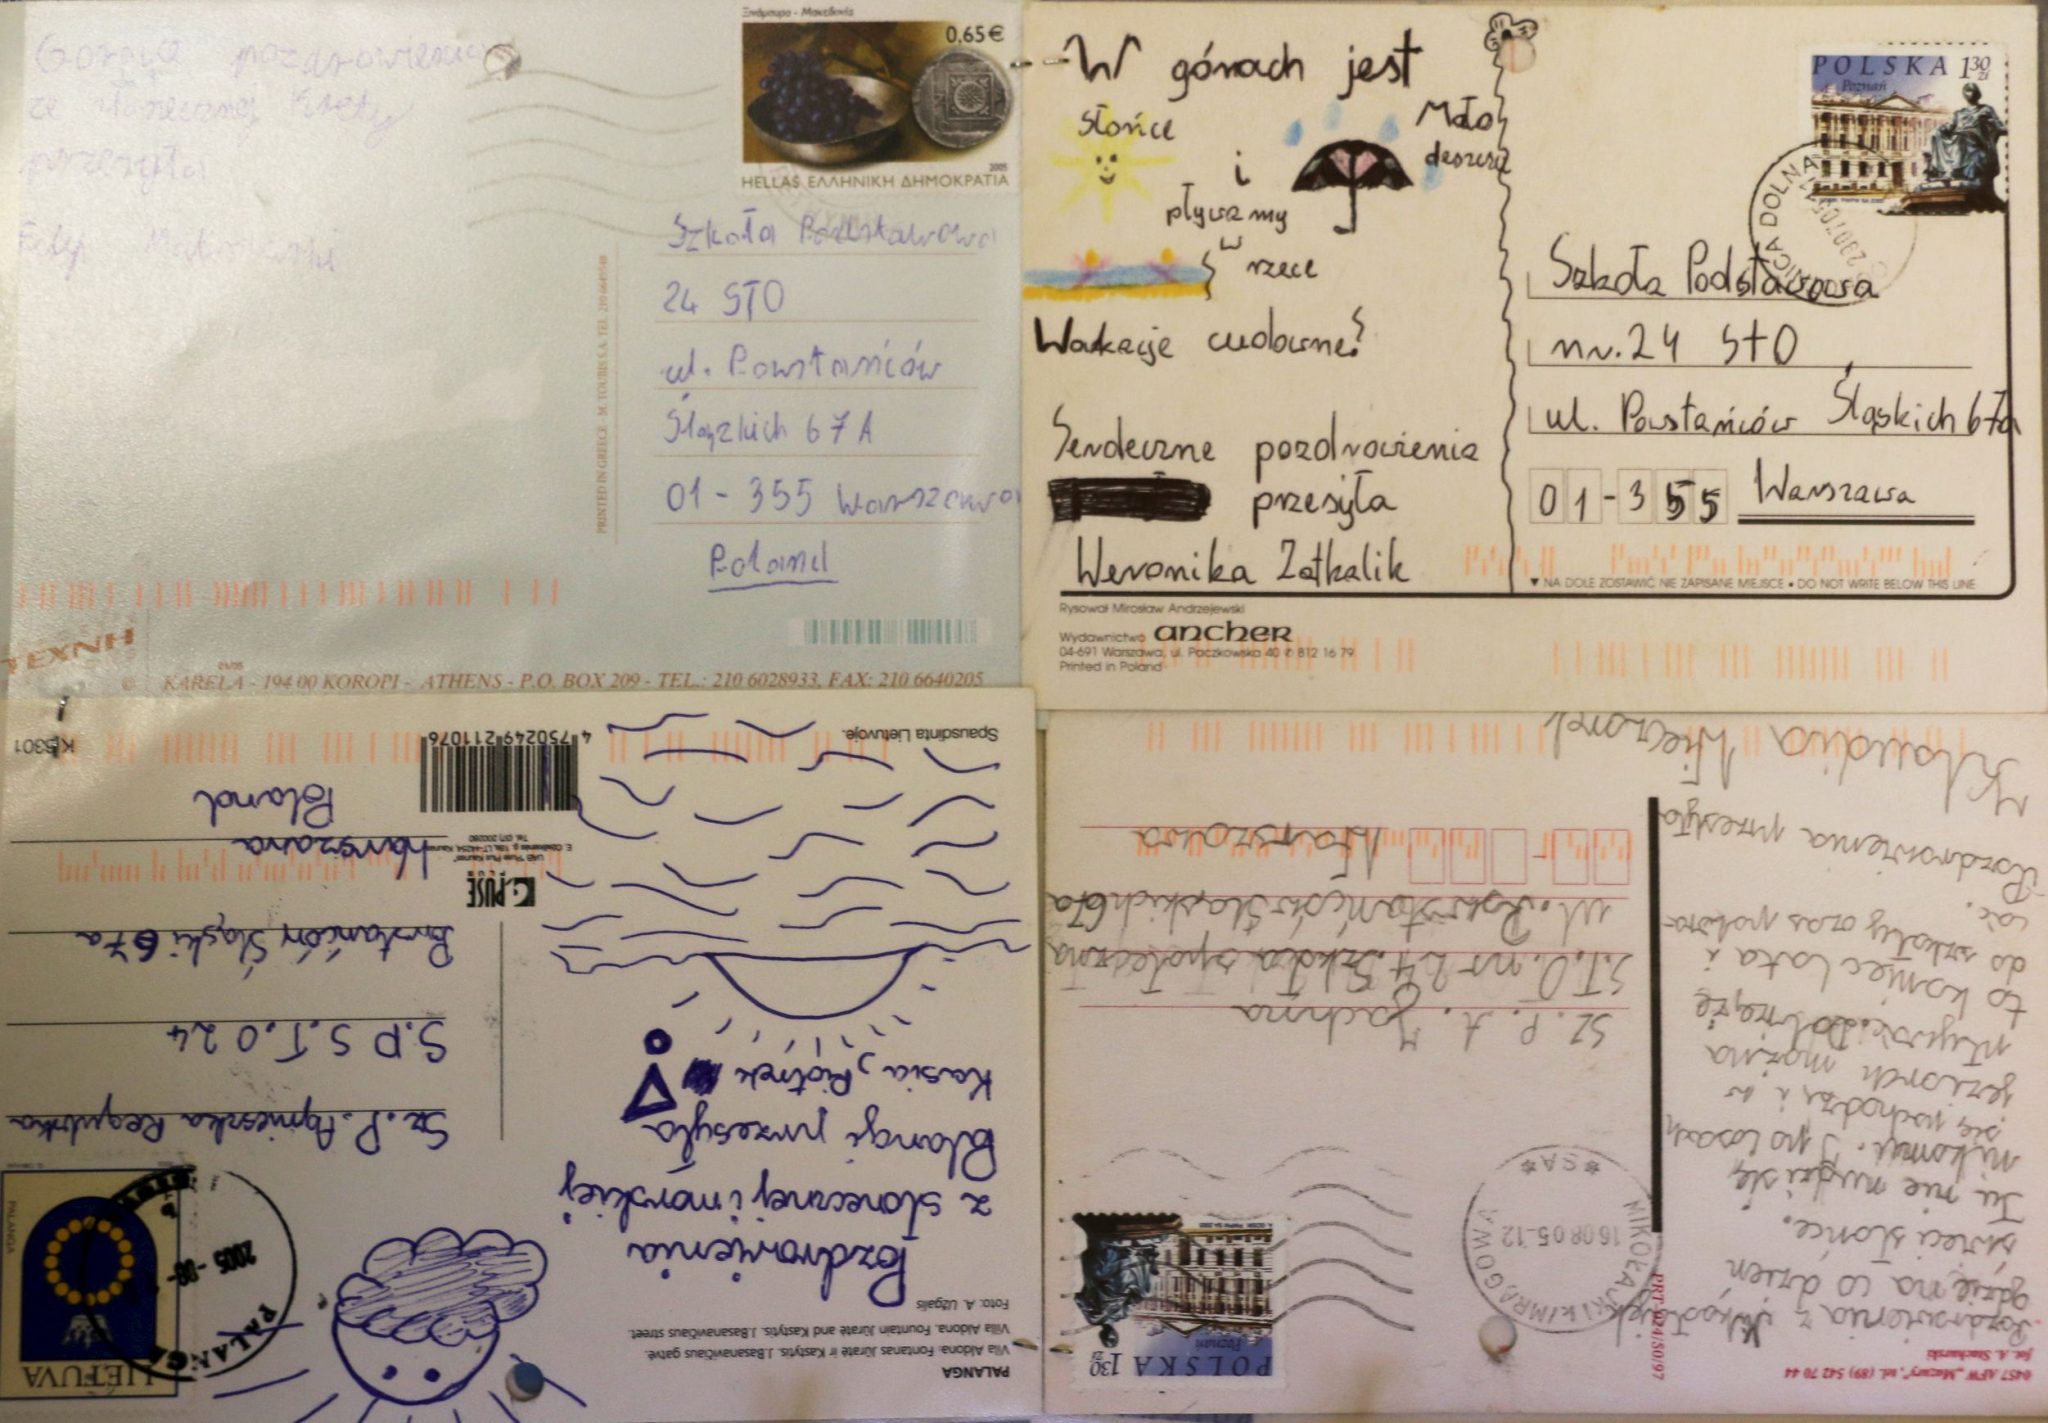 Gorące pozdrowienia
ze słonecznej Krety
przesyła
Ξινόμαυρο - Μακεδονία
0.65€
2005
HELLAS ΕΛΛΗΝΙΚΗ ΔΗΜΟΚΡΑΤΙΑ
Szkoła Podstawowa
24 STO
ul. Powstańców
Śląskich 67A
01-355 Warszawa
Poland
PRINTED IN GREECE - M. TOUBIS S.A. TEL. 210 6640548
TEXNH
© KARELA - 194 00 KOROPI - ATHENS - P.O. BOX 209 - TEL.: 210 6028933, FAX: 210 6640205
W górach jest
słońce
i
Mało
deszczu
pływamy
w
rzece
Wakacje cudowne!
Serdeczne pozdrowienia
przesyła
Weronika Zatkalik
POLSKA 1 30 zł
Poznań
Szkoła Podstawowa
nr. 24 STO
ul. Powstańców Śląskich 67a
01-355 Warszawa
▼ NA DOLE ZOSTAWIĆ NIE ZAPISANE MIEJSCE • DO NOT WRITE BELOW THIS LINE
Rysował Mirosław Andrzejewski
Wydawnictwo ancher
04-691 Warszawa, ul. Paczkowska 40 ✆ 812 16 79
Printed in Poland
PALANGA
Vila Aldona. Fontanas Jūratė ir Kastytis. J.Basanavičiaus gatvė.
Villa Aldona. Fountain Jūratė and Kastytis. J.Basanavičiaus street.
Foto: A. Užgalis
Pozdrowienia
z słonecznej i morskiej
Palangi przesyła
Kasia, Piotrek
i
LIETUVA
PALANGA
PALANGA
2005-08-
Sz. P. Agnieszka
S.P S.T.O 24
Powstańców Śląski 67a
Warszawa
Poland
G. PUSĖ
4 750249 211076
Spausdinta Lietuvoje.
K5301
0457 AFW „Mazury", tel. (89) 542 70 44
fot. A. Stachurski
PRT-1024/S0/97
Pozdrowienia z
gdzie na co dzień
świeci słońce.
Tu nie nudzi się
nikomu. I po lasach
się pochodzi i w
jeziorach można
pływać.
to koniec lata i
do szkoły czas
Pozdrowienia przesyła
Klaudia Wieczorek
POLSKA 1 30 zł
Poznań
MIKOŁAJKI K/MRĄGOWA
16 08 05-12
Sz. P. A.
S.T.O. nr 24 Szkoła społeczna
ul. Powstańców Śląskich 67a
Warszawa